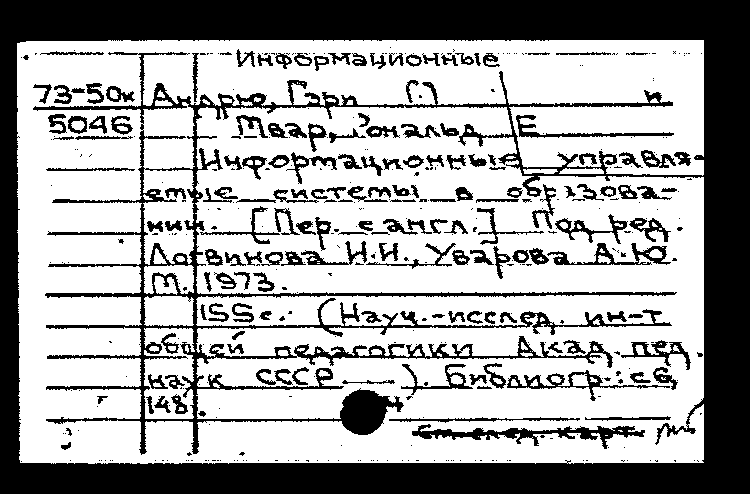 Информационные
73-50к Андрю, Гэри [.] и
5046 Мвар, Рональд Е
Информационные управля-
емые системы в образова-
нии. [Пер. с англ.] Под ред.
Логвинова И.И., Уварова А.Ю.
М. 1973.
155с. (Науч.-исслед. ин-т
общей педагогики Акад. пед.
наук СССР —). Библиогр.: с.
148.
См. след. карт.